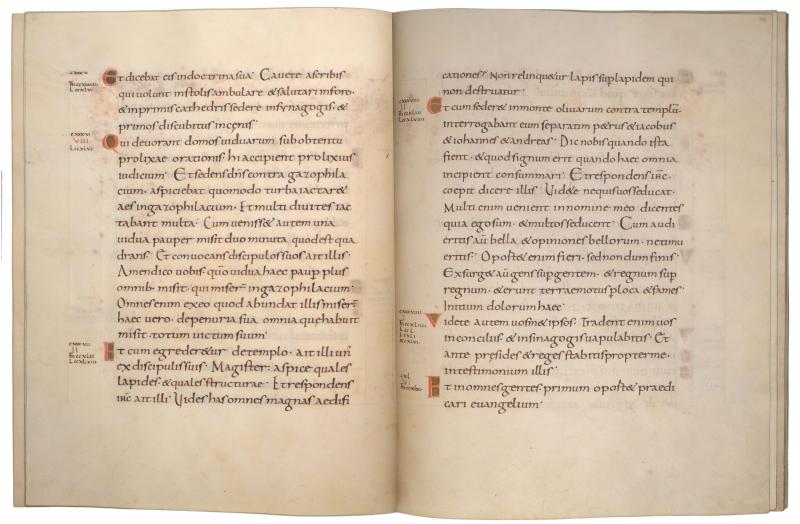 Et dicebat eis indoctrina sua· Cavete ascribis
qui volunt instolis ambulare & salutari inforo·
& inprimis cathedris sedere insynagogis· &
primos discubitus incenis·
Qui devorant domos viduarum sub obtentu
prolixae orationis hi accipient prolixius
iudicium· Et sedens dns contra gazophila
cium· aspiciebat quomodo turba iactar&
aes ingazophilacium· Et multi divites iac
tabant multa· Cum veniss& autem una
vidua pauper misit duo minuta quodest qua
drans· Et convocans discipulos suos ait illis·
Amen dico vobis· quō vidua haec paup plus
omnib· misit· qui miser ingazophilacium·
Omnes enim exeo quod abundat illis miser
haec vero· depenuria sua omnia quehabuit
misit· totum victum suum·
Et cum egreder&ur detemplo· ait illi un
ex discipulis suis· Magister· aspice quales
lapides & quales structurae· Et respondens
ihc ait illi· Vides has omnes magnas aedifi
cationes· Non relinqu&ur lapis sup lapidem qui
non destruatur·
Et cum seder& inmonte olivarum contra templū·
interrogabant eum separatim p&rus & iacobus
& iohannes & andreas· Dic nobis quando ista
fient· & quod signum erit quando haec omnia
incipient consummari· Et respondens ihc·
coepit dicere illis· Vid&e nequis vos seducat·
Multi enim venient innomine meo dicentes
quia ego sum· & multos seducent· Cum audi
eritis au bella & opiniones bellorum· ne timu
eritis· Oport& enim fieri· sed nondum finis·
Exsurg& au gens sup gentem· & regnum sup
regnum· & erunt terraemotus p loca & fames·
Initium dolorum haec·
Videte autem vosm& ipsos· Tradent enim vos
inconciliis & insinagogis vapulabitis· Et
ante presides & reges stabitis propter me·
intestimonium illis·
Et inomnes gentes· primum oport& praedi
cari evangelium·